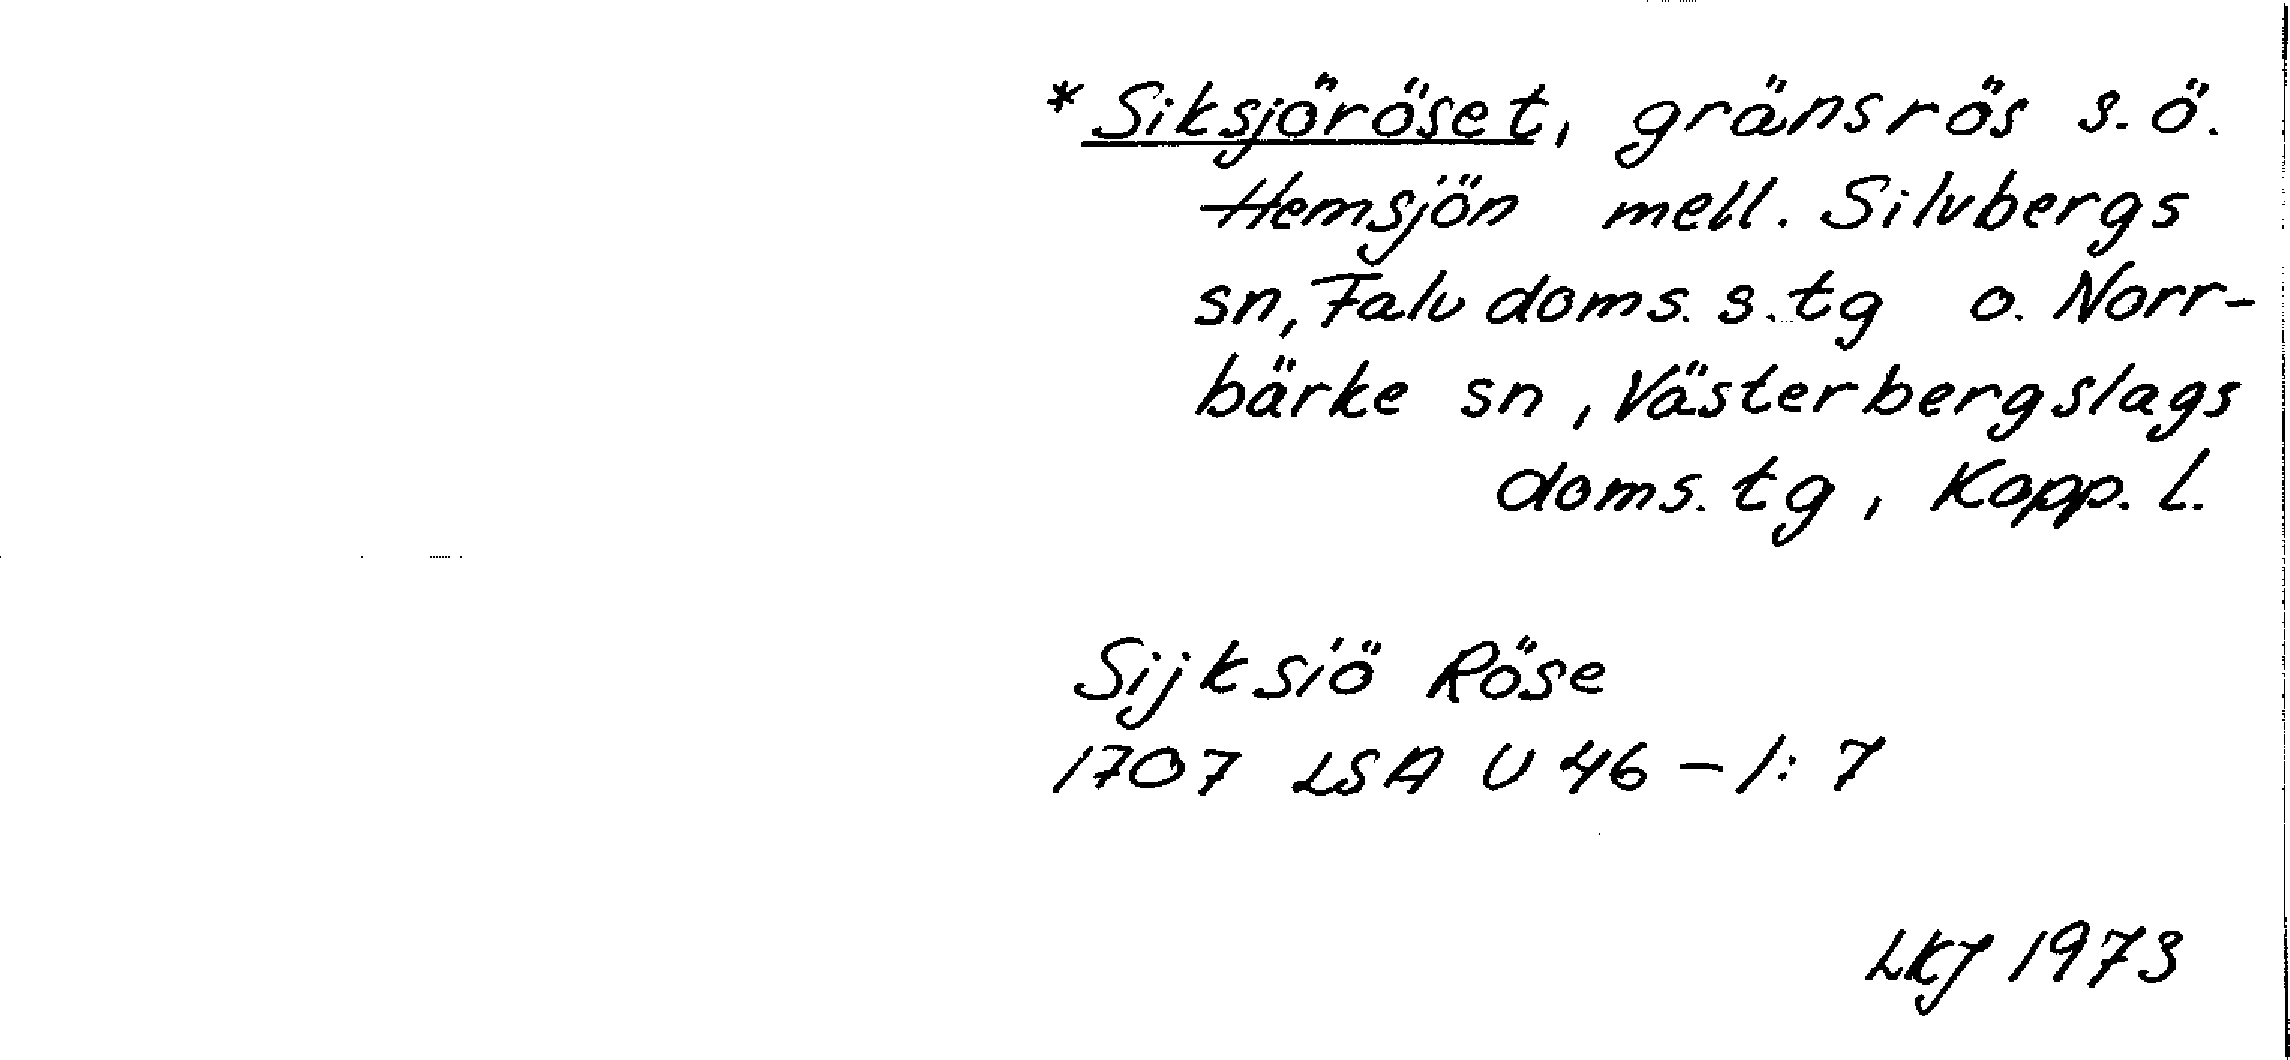 * Siksjöröset, gränsrös s.ö.
Hemsjön mell. Silvbergs
sn, Falu doms. s. tg o. Norr-
bärke sn, Västerbergslags
doms. tg, Kopp. l.
Sijksiö Röse
1707 LSA U 46 - 1: 7
LKJ 1973